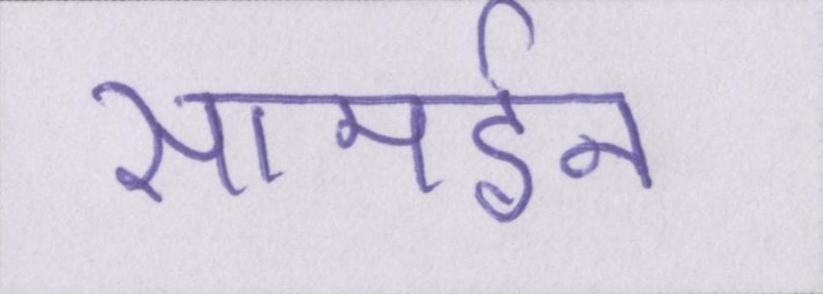 सामईन